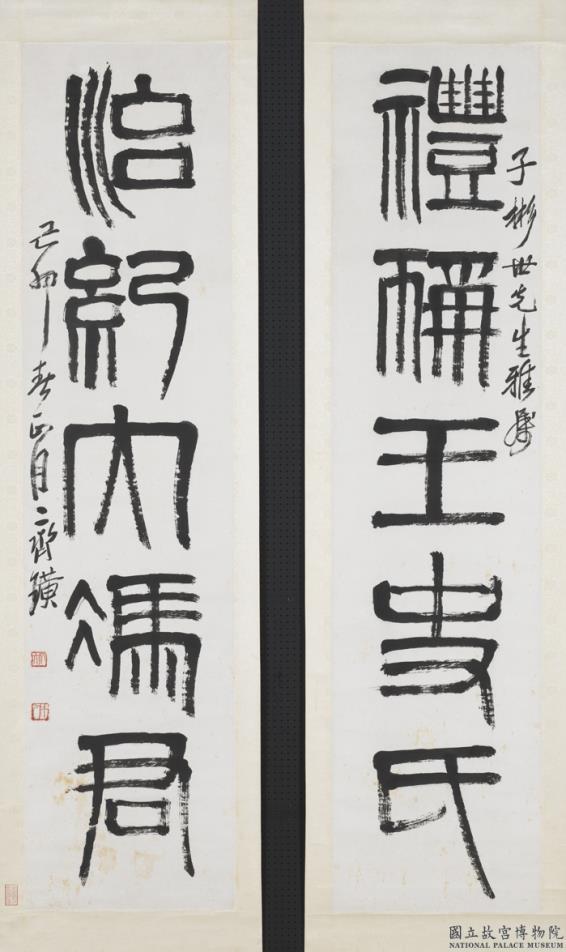 子彬世先生雅屬
禮稱王史氏
治紀大馮君
己卯春正月齊璜
國立故宮博物院
NATIONAL PALACE MUSEUM